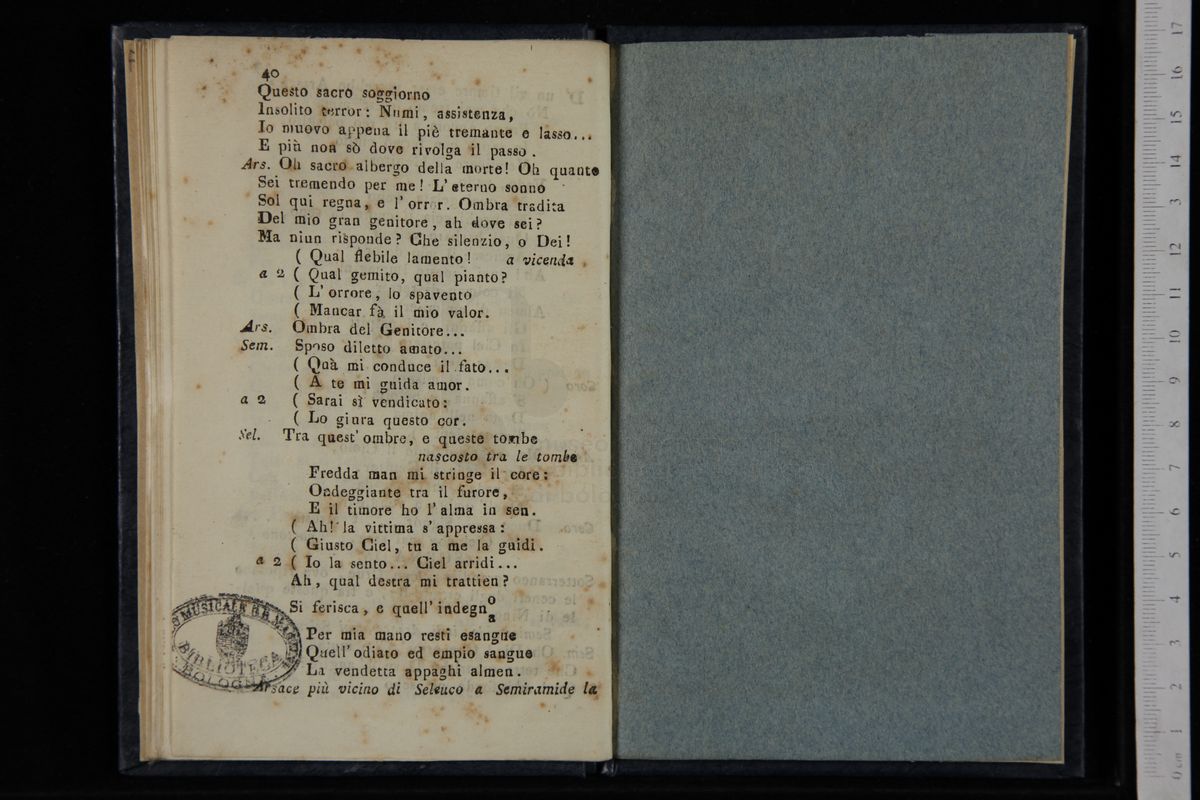 40
Questo sacro soggiorno
Insolito terror: Numi, assistenza,
Io muovo appena il piè tremante e lasso...
E più non sò dove rivolga il passo.
Ars. Oh sacro albergo della morte! Oh quanto
Sei tremendo per me! L'eterno sonno
Sol qui regna, e l'orror. Ombra tradita
Del mio gran genitore, ah dove sei?
Ma niun risponde? Che silenzio, o Dei!
( Qual flebile lamento! a vicenda.
a 2 ( Qual gemito, qual pianto?
( L'orrore, lo spavento
( Mancar fà il mio valor.
Ars. Ombra del Genitore...
Sem. Sposo diletto amato...
( Quà mi conduce il fato...
( A te mi guida amor.
a 2 ( Sarai sì vendicato:
( Lo giura questo cor.
Sel. Tra quest'ombre, e queste tombe
nascosto tra le tombe
Fredda man mi stringe il core:
Ondeggiante tra il furore,
E il timore ho l'alma in sen.
( Ah! la vittima s'appressa:
( Giusto Ciel, tu a me la guidi.
a 2 ( Io la sento... Ciel arridi...
Ah, qual destra mi trattien?
Si ferisca, e quell'indegno
a
Per mia mano resti esangue
Quell'odiato ed empio sangue
La vendetta appaghi almen.
Arsace più vicino di Seleuco a Semiramide la
MUSICALE
BIBLIOTECA
BOLOGNA
0 cm 1 2 3 4 5 6 7 8 9 10 11 12 13 14 15 16 17